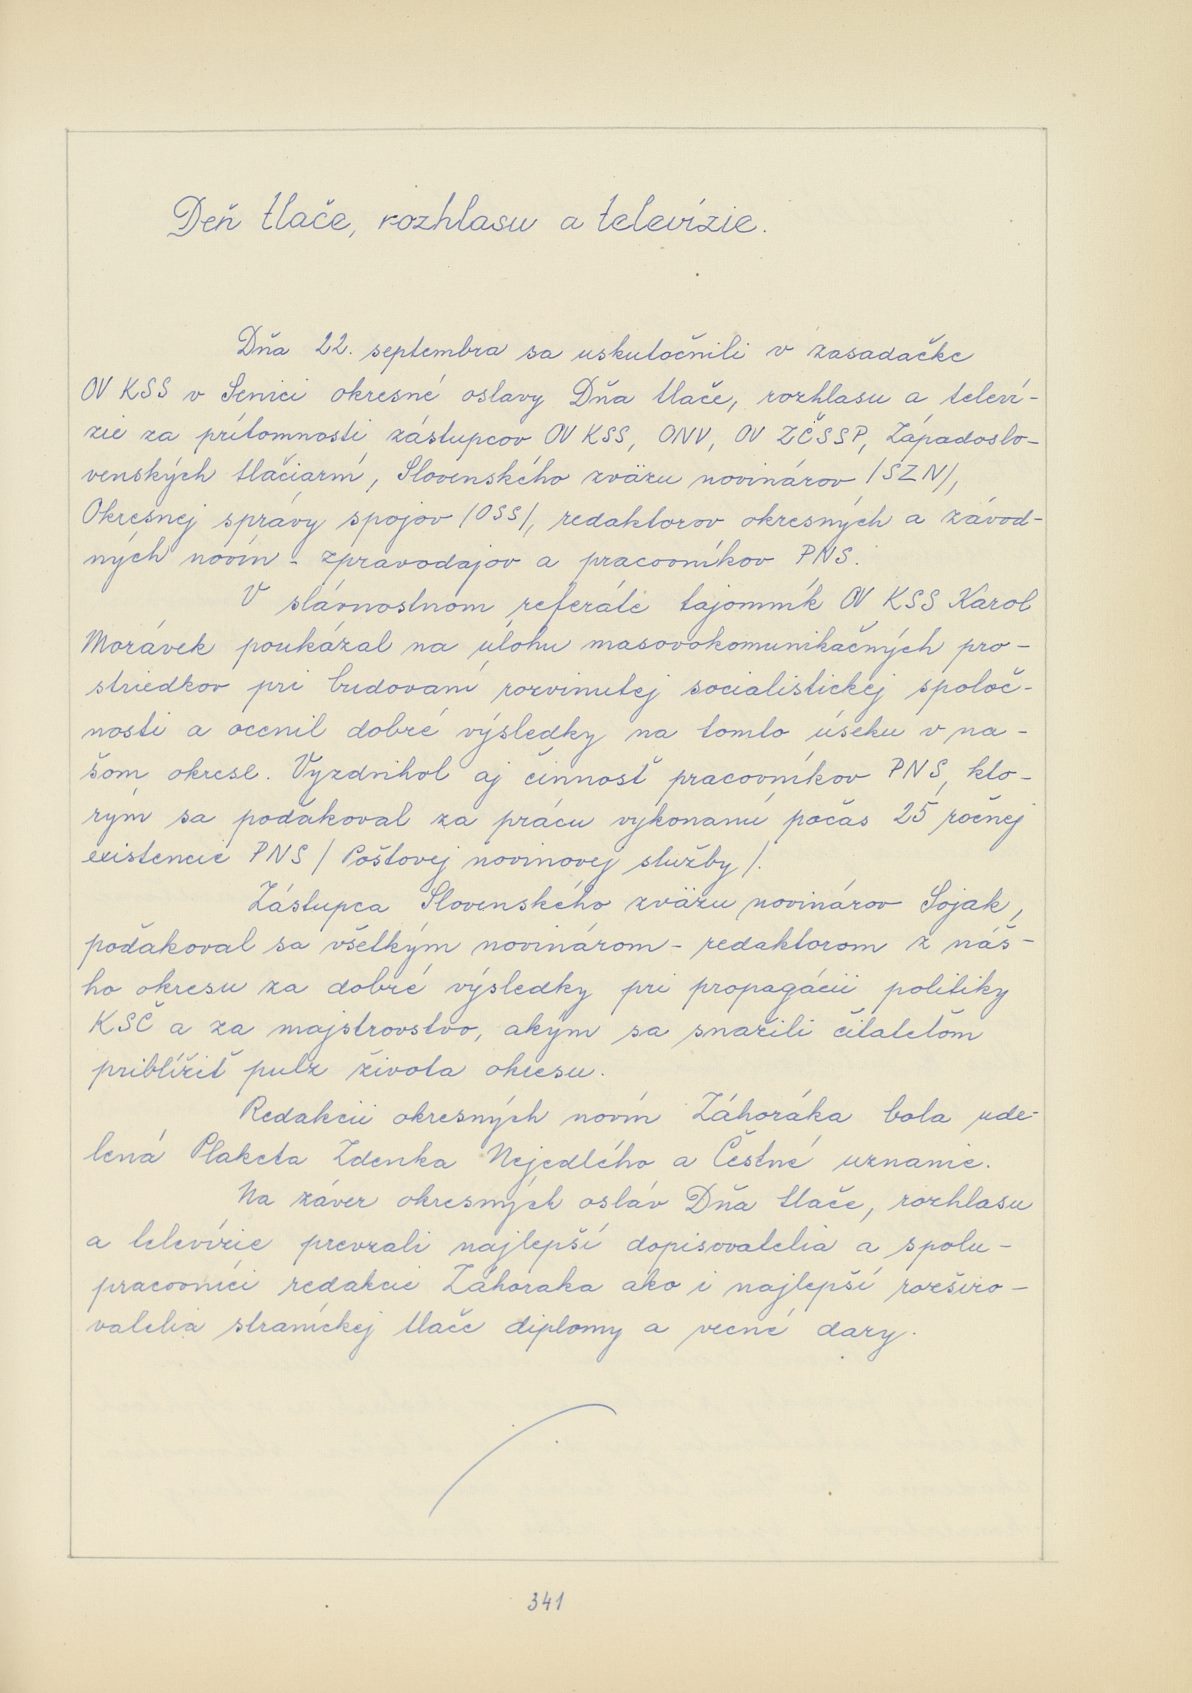 Deň tlače, rozhlasu a televízie.
Dňa 22. septembra sa uskutočnili v zasadačke
OV KSS v Senici okresné oslavy Dňa tlače, rozhlasu a televí-
zie za prítomnosti zástupcov OV KSS, ONV, OV ZČSSP, Západoslo-
venských tlačiarní, Slovenského zväzu novinárov /SZN/,
Okresnej správy spojov /OSS/, redaktorov okresných a závod-
ných novín - zpravodajov a pracovníkov PNS.
V slávnostnom referáte tajomník OV KSS Karol
Morávek poukázal na úlohu masovokomunikačných pro-
striedkov pri budovaní rozvinutej socialistickej spoloč-
nosti a ocenil dobré výsledky na tomto úseku v na-
šom okrese. Vyzdvihol aj činnosť pracovníkov PNS, kto-
rým sa poďakoval za prácu vykonanú počas 25 ročnej
existencie PNS / Poštovej novinovej služby /.
Zástupca Slovenského zväzu novinárov Sojak,
poďakoval sa všetkým novinárom - redaktorom z náš-
ho okresu za dobré výsledky pri propagácii politiky
KSČ a za majstrovstvo, akým sa snažili čitateľom
priblížiť pulz života okresu.
Redakcii okresných novín Záhoráka bola ude-
lená Plaketa Zdenka Nejedlého a Čestné uznanie.
Na záver okresných osláv Dňa tlače, rozhlasu
a televízie prevzali najlepší dopisovatelia a spolu-
pracovníci redakcie Záhoraka ako i najlepší rozširo-
valelia straníckej tlače diplomy a vecné dary.
341